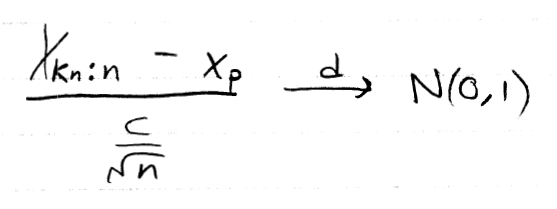 \frac{X_{k_n:n} - x_p}{\frac{c}{\sqrt{n}}} \xrightarrow{d} N(0,1)